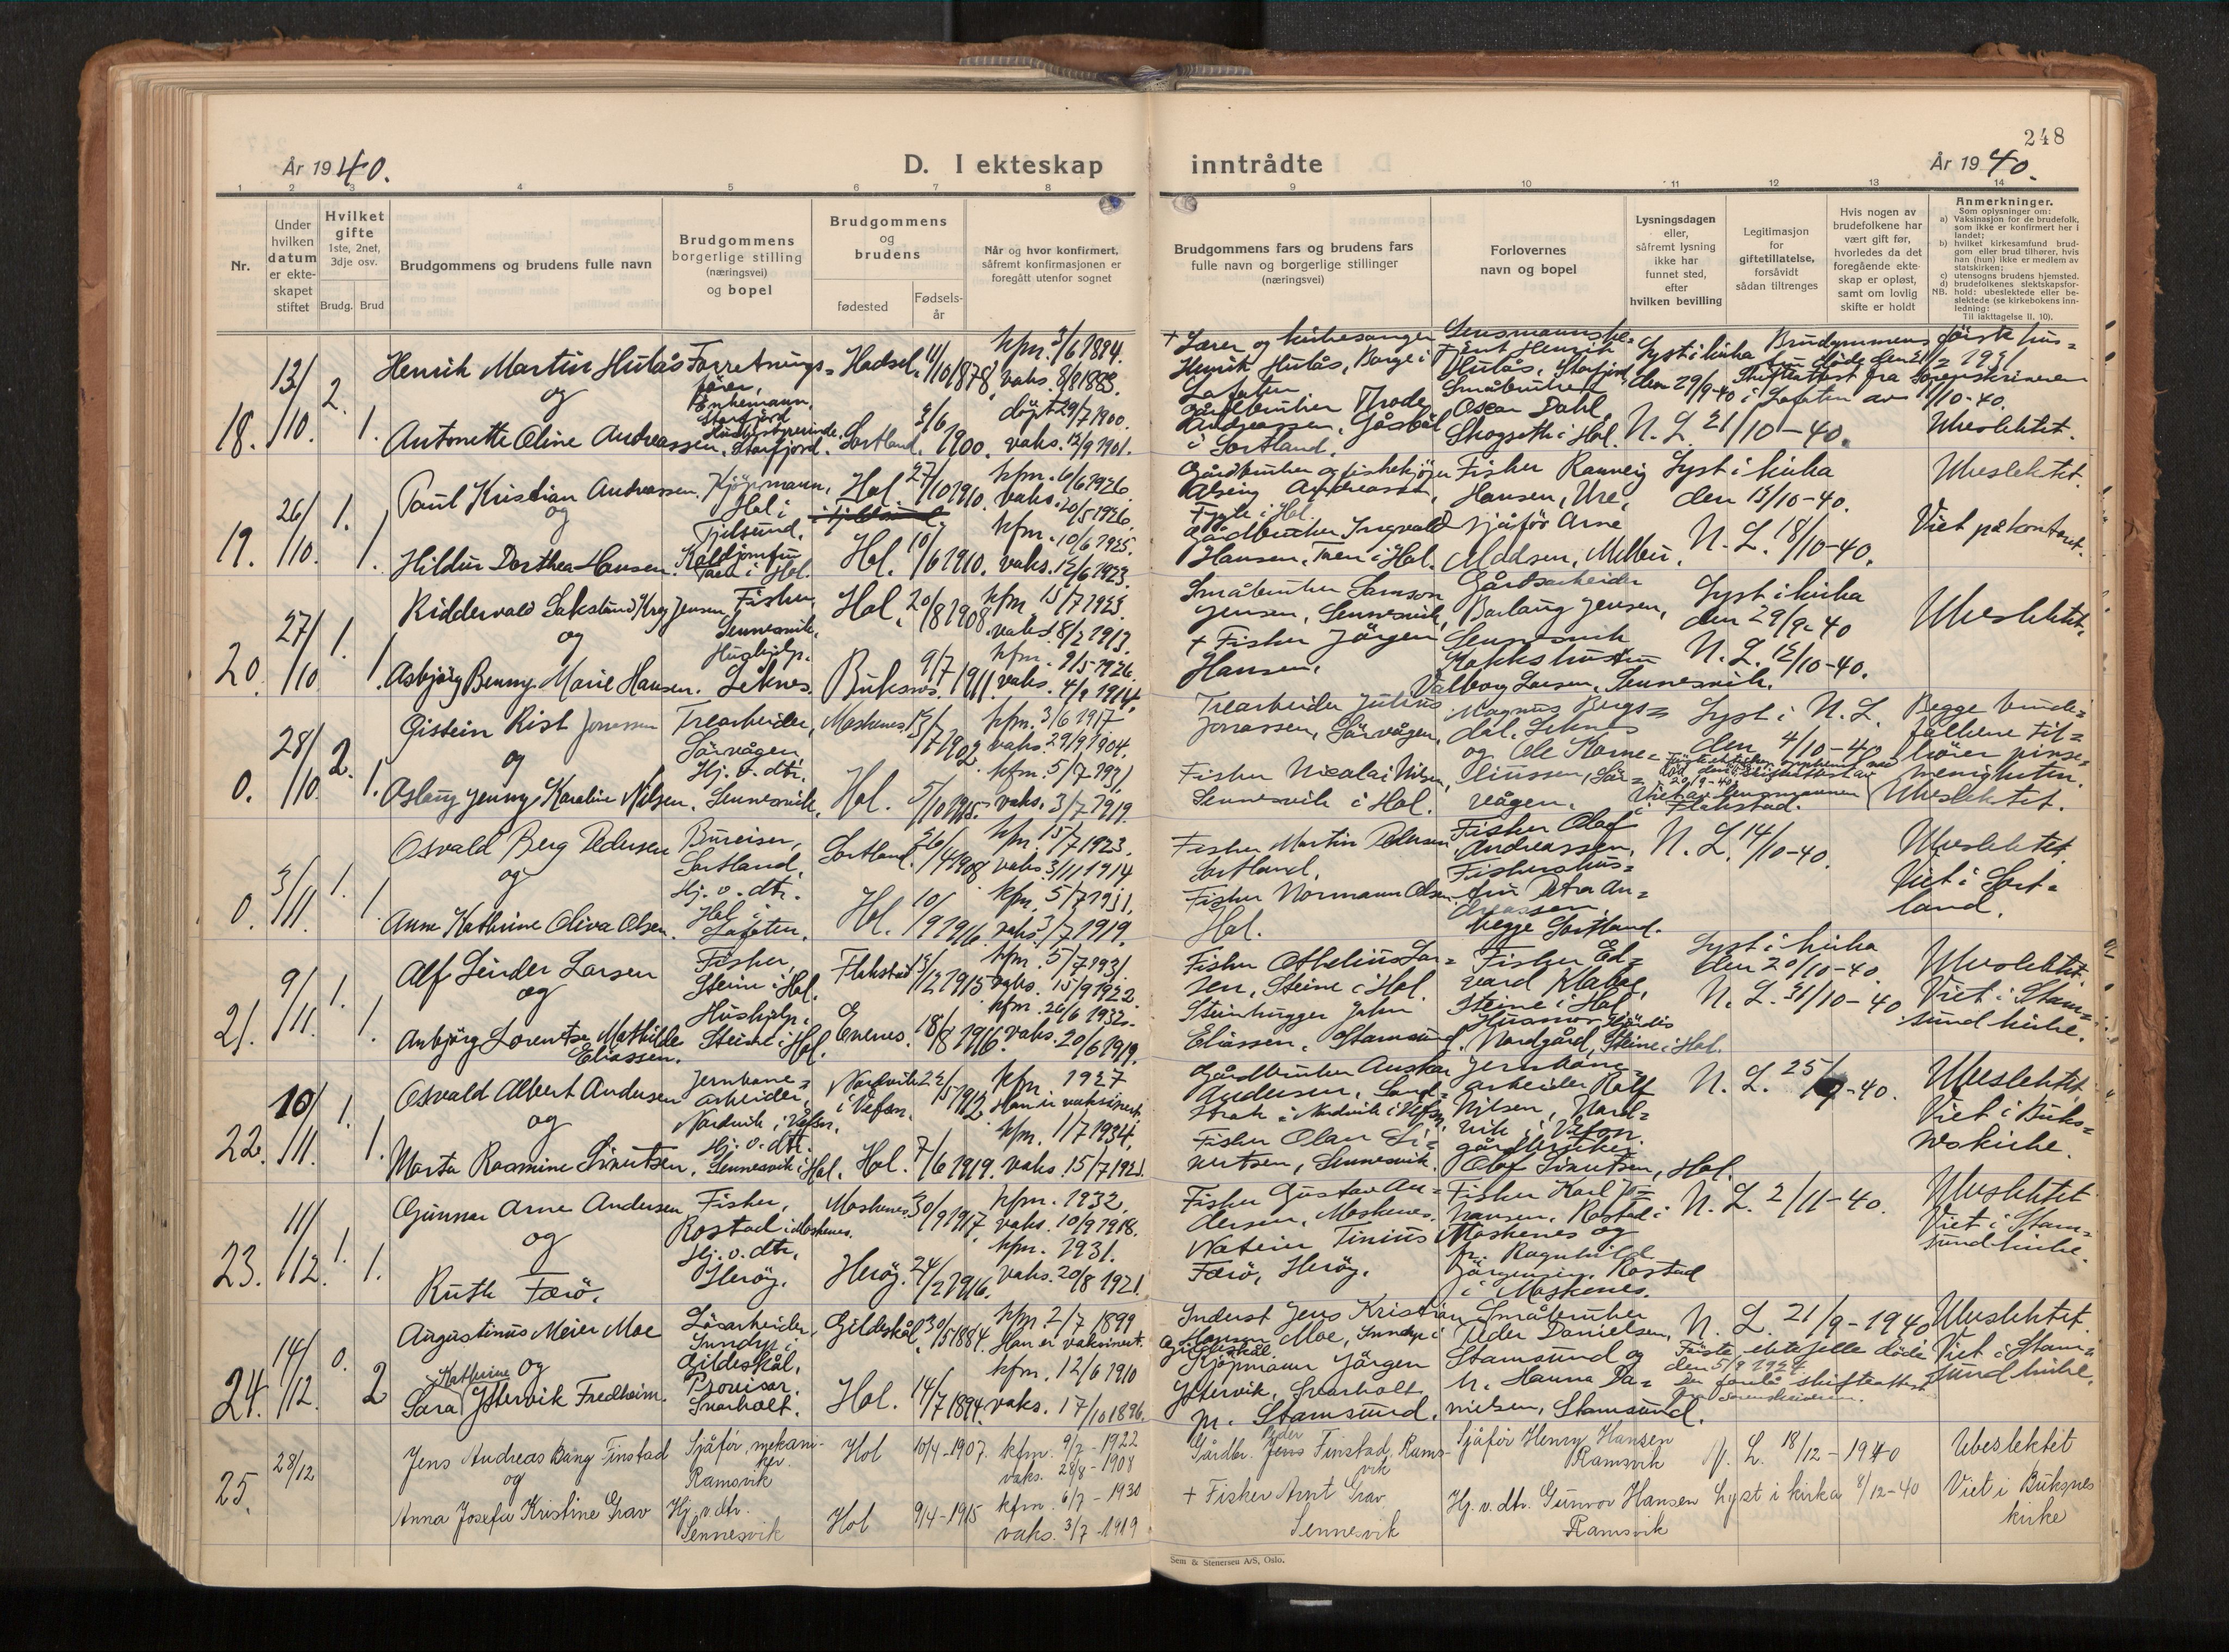 248
År 1940.
D. I ekteskap inntrådte
År 1940.
1 2 3 4 5 6 7 8 9 10 11 12 13 14
Nr.
Under hvilken datum er ekteskapet stiftet
Hvilket gifte
1ste, 2net, 3dje osv.
Brudg. Brud
Brudgommens og brudens fulle navn
Brudgommens borgerlige stilling (næringsvei) og bopel
Brudgommens og brudens
fødested
Fødselsår
Når og hvor konfirmert, såfremt konfirmasjonen er foregått utenfor sognet
Brudgommens fars og brudens fars fulle navn og borgerlige stillinger (næringsvei)
Forlovernes navn og bopel
Lysningsdagen eller, såfremt lysning ikke har funnet sted, efter hvilken bevilling
Legitimasjon for giftetillatelse, forsåvidt sådan tiltrenges
Hvis nogen av brudefolkene har vært gift før, hvorledes da det foregående ekteskap er opløst, samt om lovlig skifte er holdt
Anmerkninger.
Som oplysninger om:
a) Vaksinasjon for de brudefolk, som ikke er konfirmert her i landet;
b) hvilket kirkesamfund brudgom eller brud tilhører, hvis han (hun) ikke er medlem av statskirken;
c) utensogns brudens hjemsted.
d) brudefolkenes slektskapsforhold: ubeslektede eller beslektede (se kirkebokens innledning:
NB. Til iakttagelse II, 10).
18. 13/10. 2. 1.
Henrik Martin Hutås
og
Antonette Oline Andreassen.
Forretnings=
fører,
Enkemann,
Storfjord
Husbestyrerinde,
Storfjord.
Hadsel. 11/10 1878,
Sortland. 3/6 1900.
kfm. 3/6 1894.
vaks. 8/8 1883.
döpt 29/7 1900.
vaks. 12/9 1901.
+ Lærer og kirkesanger
Henrik Hutås, Borge i
Lofoten
Gårdbruker Trode
Andreassen, Gåsbøl
i Sortland.
Hutås, Storfjord,
Småbruker
Oscar Dahl,
Skogseth i Hol.
Lyst i kirka
den 29/9-40
N. L. 21/10-40.
Brudgommens første hus=
tru døde den 21/2 1931
Skifteattest fra Sorenskriveren
i Lofoten av 1/10-40.
Ubeslektet.
19. 26/10. 1. 1.
Paul Kristian Andreassen.
og
Hildur Dorthea Hansen.
Kjöpmann,
Hol i
Tjelsund.
Taen i Hol.
Hol. 27/10 1910.
Hol. 10/6 1910.
kfm. 6/6 1926.
vaks. 20/5 1926.
kfm. 10/6 1925.
vaks. 12/6 1923.
Gårdbruker og fiskekjøper
Andreassen,
Fygle i Hol.
Gårdbruker Ingvald
Hansen, Taen i Hol.
Fisker Ranneig
Hansen, Ure,
Sjåför Arne
Madsen, Melbu.
Lyst i kirka
den 13/10-40.
N. L. 18/10-40.
Ubeslektet.
Viet på kontoret.
20. 27/10 1. 1.
Riddervald Sakstind Krey Jensen
og
Asbjørg Benny Marie Hansen.
Fisker,
Sennesvik.
Hushjelp.
Leknes.
Hol. 20/8 1908.
Buksnes. 9/7 1911.
kfm. 15/7 1923.
vaks. 8/2 1913.
kfm. 9/5 1926.
vaks. 4/9 1914.
Småbruker Samson
Jensen, Sennesvik,
+ Fisker Jörgen
Hansen.
Gårdsarbeider
Barlaug Jensen,
Sennesvik
Kokkshustru
Valborg Larsen, Sennesvik.
Lyst i kirka
den 29/9-40
N. L. 12/10-40.
Ubeslektet.
0. 28/10. 2. 1.
Øistein Rist Jonassen
og
Aslaug Jenny Karoline Nilsen.
Trearbeider,
Sörvågen,
Hj. v. dtr.
Sennesvik.
Moskenes. 13/7 1902
Hol. 5/10 1915.
kfm. 3/6 1917
vaks. 29/9 1904.
kfm. 5/7 1931
vaks. 3/7 1919.
Trearbeider Julius
Jonassen, Sörvågen,
Fisker Nicolai Nilsen,
Sennesvik i Hol.
Magnus Bergs=
dal, Leknes
og Ole Korne=
liussen, Sör=
vågen.
Lyst i N. L.
den 4/10-40
Viet av lensmannen
i Flakstad.
Begge brude=
folkene til=
hører pinse=
menigheten.
Ubeslektet.
0. 3/11. 1. 1.
Osvald Berg Pedersen
og
Anna Kathrine Oliva Olsen.
Bureiser,
Sortland,
Hj. v. dtr.
Hol i
Lofoten.
Sortland. 26/4 1908
Hol. 10/9 1916.
kfm. 15/7 1923.
vaks. 3/11 1914
kfm. 5/7 1931.
vaks. 3/7 1919.
Fisker Martin Pedersen
Sortland,
Fisker Normann Olsen,
Hol.
Fisker Olaf
Andreassen,
Fiskerhus=
tru Petra An=
dreassen.
begge Sortland.
N. L. 14/10-40.
Ubeslektet.
Viet i Sort=
land.
21. 9/11. 1. 1.
Alf Linder Larsen
og
Anbjørg Lorentse Mathilde
Eliassen.
Fisker,
Steine i Hol.
Hushjelp,
Steine i Hol.
Flakstad 13/12 1915
Evenes. 18/8 1916.
kfm. 5/7 1931.
vaks. 15/9 1922.
kfm. 26/6 1932.
vaks. 20/6 1919.
Fisker Othelius Lar=
sen, Steine i Hol.
Steinhugger John
Eliassen, Stamsund.
Fisker Ed=
vard Klaboe,
Steine i Hol
Husmor Hjördis
Nordgård, Steine i Hol.
Lyst i kirka
den 20/10-40.
N. L. 31/10-40
Ubeslektet.
Viet i Stam=
sund kirke.
22. 10/11. 1. 1.
Osvald Albert Andersen
og
Marta Rasmine Sivertsen.
Jernbane=
arbeider,
Nordvik i Vefsn.
Hj. v. dtr.
Sennesvik i Hol.
Nordvik
i Vefsn. 22/5 1912.
Hol. 7/6 1919.
kfm. 1927
Han er vaksinert.
kfm. 1/7 1934,
vaks. 15/7 1921.
Gårdbruker Anskar
Andersen,
Fisker Olav Si=
vertsen, Sennesvik.
Jernbane=
arbeider Rolf
Nilsen, Nord=
vik i Vefsn.
gårdbruker
Olaf Sivertsen, Hol.
N. L. 25/9-40.
Ubeslektet.
Viet i Buks=
neskirke.
23. 11/12. 1. 1.
Gunnar Arne Andersen
og
Ruth Færö.
Fisker,
Rostad i Moskenes.
Hj. v. dtr,
Heröy.
Moskenes. 30/9 1917,
Heröy. 24/2 1916.
kfm. 1932.
vaks. 10/9 1918.
kfm. 1931.
vaks. 20/8 1921.
Fisker Gustav An=
dersen, Moskenes.
Tinius
Færö, Heröy.
Fisker Karl Jo=
hansen, Rostad i
Moskenes og
fr. Ragnhild
Jörgensen, Rostad
i Moskenes.
N. L. 2/11-40.
Ubeslektet
Viet i Stam=
sund kirke.
24. 14/12. 0. 2
Augustinus Meier Moe
og
Sara Kathrine Yttervik Fredheim.
Løsarbeider,
Inndyr i
Gildeskål,
Provisor,
Svarholt.
Gildeskål. 30/5 1884.
Hol. 14/7 1894.
kfm. 2/7 1899.
Han er vaksinert.
kfm. 12/6 1910
vaks. 17/10 1896.
Inderst Jens Kristian
Hansen Moe, Inndyr i
Gildeskål.
Kjøpmann Jörgen
Yttervik, Svarholt
pr. Stamsund.
Småbruker
Peder Danielsen,
Stamsund og
fr. Hanna Da=
nielsen, Stamsund.
N. L. 21/9-1940
Første ektefelle døde
den 5/9 1924
Der forelå skifteattest
fra sorenskriveren.
Ubeslektet.
Viet i Stam=
sund kirke.
25. 28/12
Jens Andreas Bang Finstad
og
Anna Josefa Kristine Grav
Sjåfør, mekani-
ker.
Ramsvik
Hj. v. dtr.
Sennesvik
Hol 10/4-1907.
Hol 9/4-1915
kfm. 9/7-1922
vaks. 28/8-1908
kfm. 6/7-1930
vaks. 3/7-1919
Gårdbr. Jens Peder Finstad, Rams-
vik
+ Fisker Arnt Grav
Sennesvik
Sjåfør Henry Hansen
Ramsvik
Hj. v. dtr. Gunvor Hansen
Ramsvik
N. L. 18/12-1940
Lyst i kirka 8/12-40
Ubeslektet
Viet i Buksnes
kirke
Sem & Stenersen A/S, Oslo.